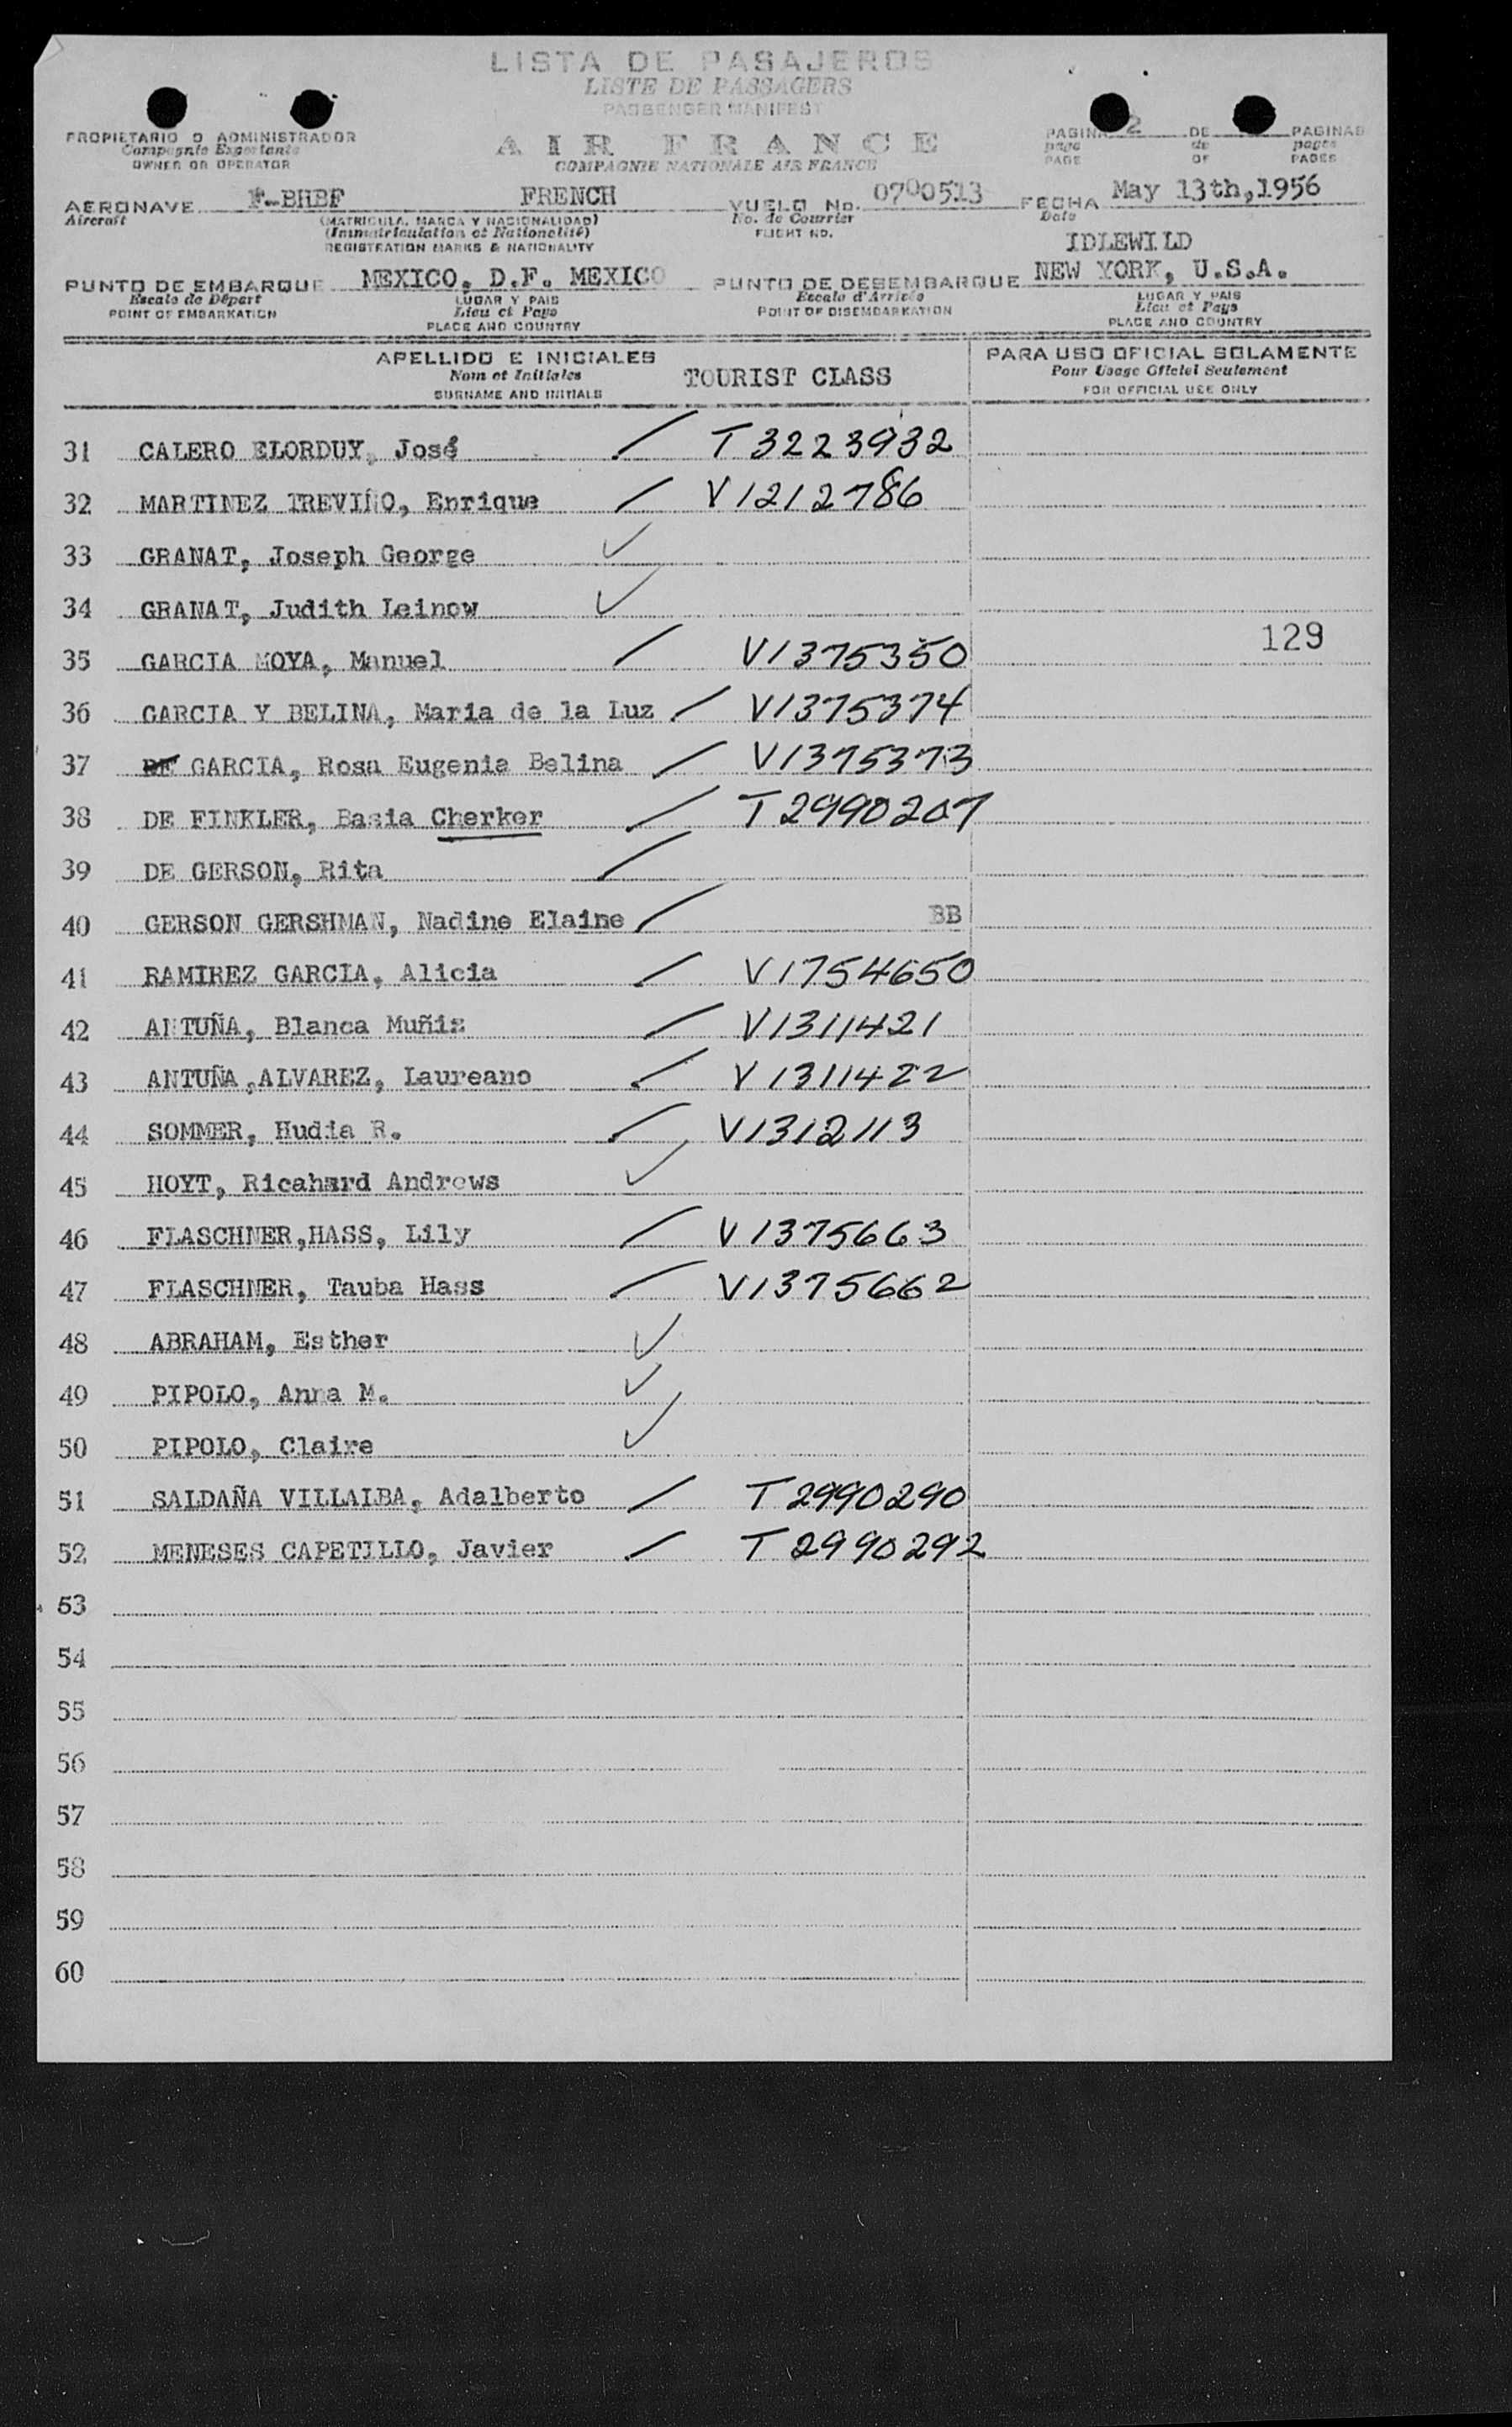 LISTA DE PASAJEROS
LISTE DE PASSAGERS
PASSENGER MANIFEST
PROPIETARIO O ADMINISTRADOR
Compagnie Exportante
OWNER OR OPERATOR
AIR FRANCE
COMPAGNIE NATIONALE AIR FRANCE
PAGINA 2 DE PAGINAS
page de pages
PAGE OF PAGES
AERONAVE F-BHBF FRENCH VUELO No. 0700513 FECHA May 13th,1956
Aircraft (MATRICULA, MARCA Y NACIONALIDAD) No. de Courrier Date
(Immatriculation et Nationalité) FLIGHT NO.
REGISTRATION MARKS & NATIONALITY
IDLEWILD
PUNTO DE EMBARQUE MEXICO, D.F. MEXICO PUNTO DE DESEMBARQUE NEW YORK, U.S.A.
Escale de Départ LUGAR Y PAIS Escale d'Arrivée LUGAR Y PAIS
POINT OF EMBARKATION Lieu et Pays POINT OF DISEMBARKATION Lieu et Pays
PLACE AND COUNTRY PLACE AND COUNTRY
APELLIDO E INICIALES PARA USO OFICIAL SOLAMENTE
Nom et Initiales TOURIST CLASS Pour Usage Officiel Seulement
SURNAME AND INITIALS FOR OFFICIAL USE ONLY
31 CALERO ELORDUY, José / T3223932
32 MARTINEZ TREVIÑO, Enrique / V1212786
33 GRANAT, Joseph George ✓
34 GRANAT, Judith Leinow ✓
129
35 GARCIA MOYA, Manuel / V1375350
36 GARCIA Y BELINA, Maria de la Luz / V1375374
37 DE GARCIA, Rosa Eugenia Belina / V1375373
38 DE FINKLER, Basia Cherker / T2990207
39 DE GERSON, Rita /
40 GERSON GERSHMAN, Nadine Elaine / BB
41 RAMIREZ GARCIA, Alicia / V1754650
42 ANTUÑA, Blanca Muñiz / V1311421
43 ANTUÑA,ALVAREZ, Laureano / V1311422
44 SOMMER, Hudia R. / V1312113
45 HOYT, Ricahard Andrews ✓
46 FLASCHNER,HASS, Lily / V1375663
47 FLASCHNER, Tauba Hass / V1375662
48 ABRAHAM, Esther ✓
49 PIPOLO, Anna M. ✓
50 PIPOLO, Claire ✓
51 SALDAÑA VILLALBA, Adalberto / T2990290
52 MENESES CAPETILLO, Javier / T2990292
53
54
55
56
57
58
59
60